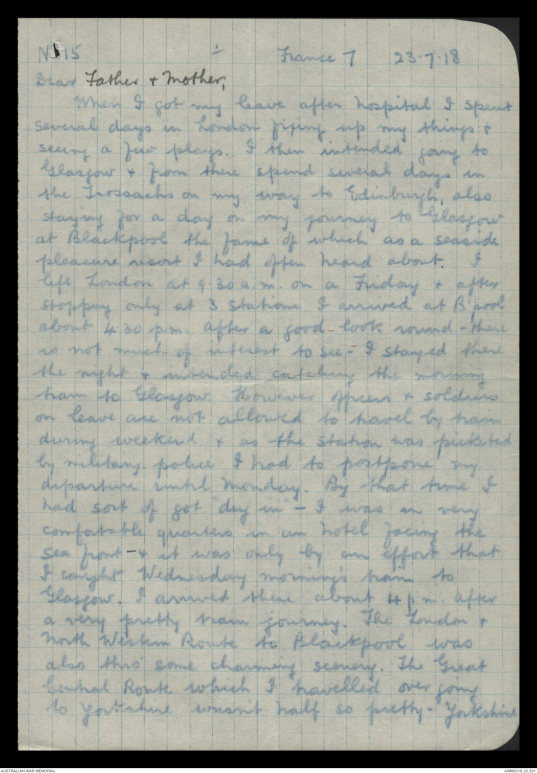 No 15 France 7 23.7.18
Dear Father & Mother,
When I got my leave after hospital I spent
several days in London fixing up my things &
seeing a few plays. I then intended going to
Glasgow & from there spend several days in
the Trossachs on my way to Edinburgh, also
staying for a day on my journey to Glasgow
at Blackpool the fame of which as a seaside
pleasure resort I had often heard about. I
left London at 9.30 a.m. on a Friday & after
stopping only at 3 stations I arrived at B'pool
about 4.30 p.m. After a good-look round - there
is not much of interest to see - I stayed there
the night & intended catching the morning
train to Glasgow. However officers & soldiers
on leave are not allowed to travel by train
during weekend & as the station was picketed
by military police I had to postpone my
departure until Monday. By that time I
had sort of got "dug in" - I was in very
comfortable quarters in an hotel facing the
sea front - & it was only by an effort that
I caught Wednesday morning's train to
Glasgow. I arrived there about 4 p.m. after
a very pretty train journey. The London &
North Western Route to Blackpool was
also thro' some charming scenery. The Great
Central Route which I travelled over going
to Yorkshire wasn't half so pretty - Yorkshire
AUSTRALIAN WAR MEMORIAL